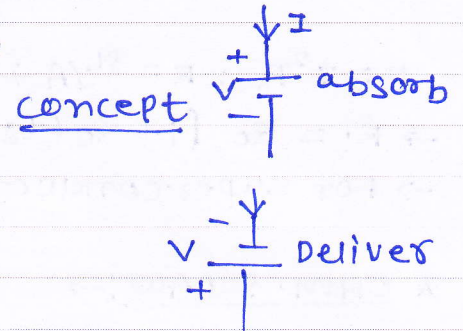 I
+
concept V absorb
-
-
V Deliver
+